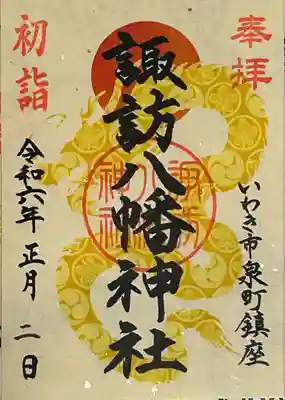 奉拝
いわき市泉町鎮座
諏訪八幡神社
諏訪八幡神社
初詣
令和六年 正月 二日